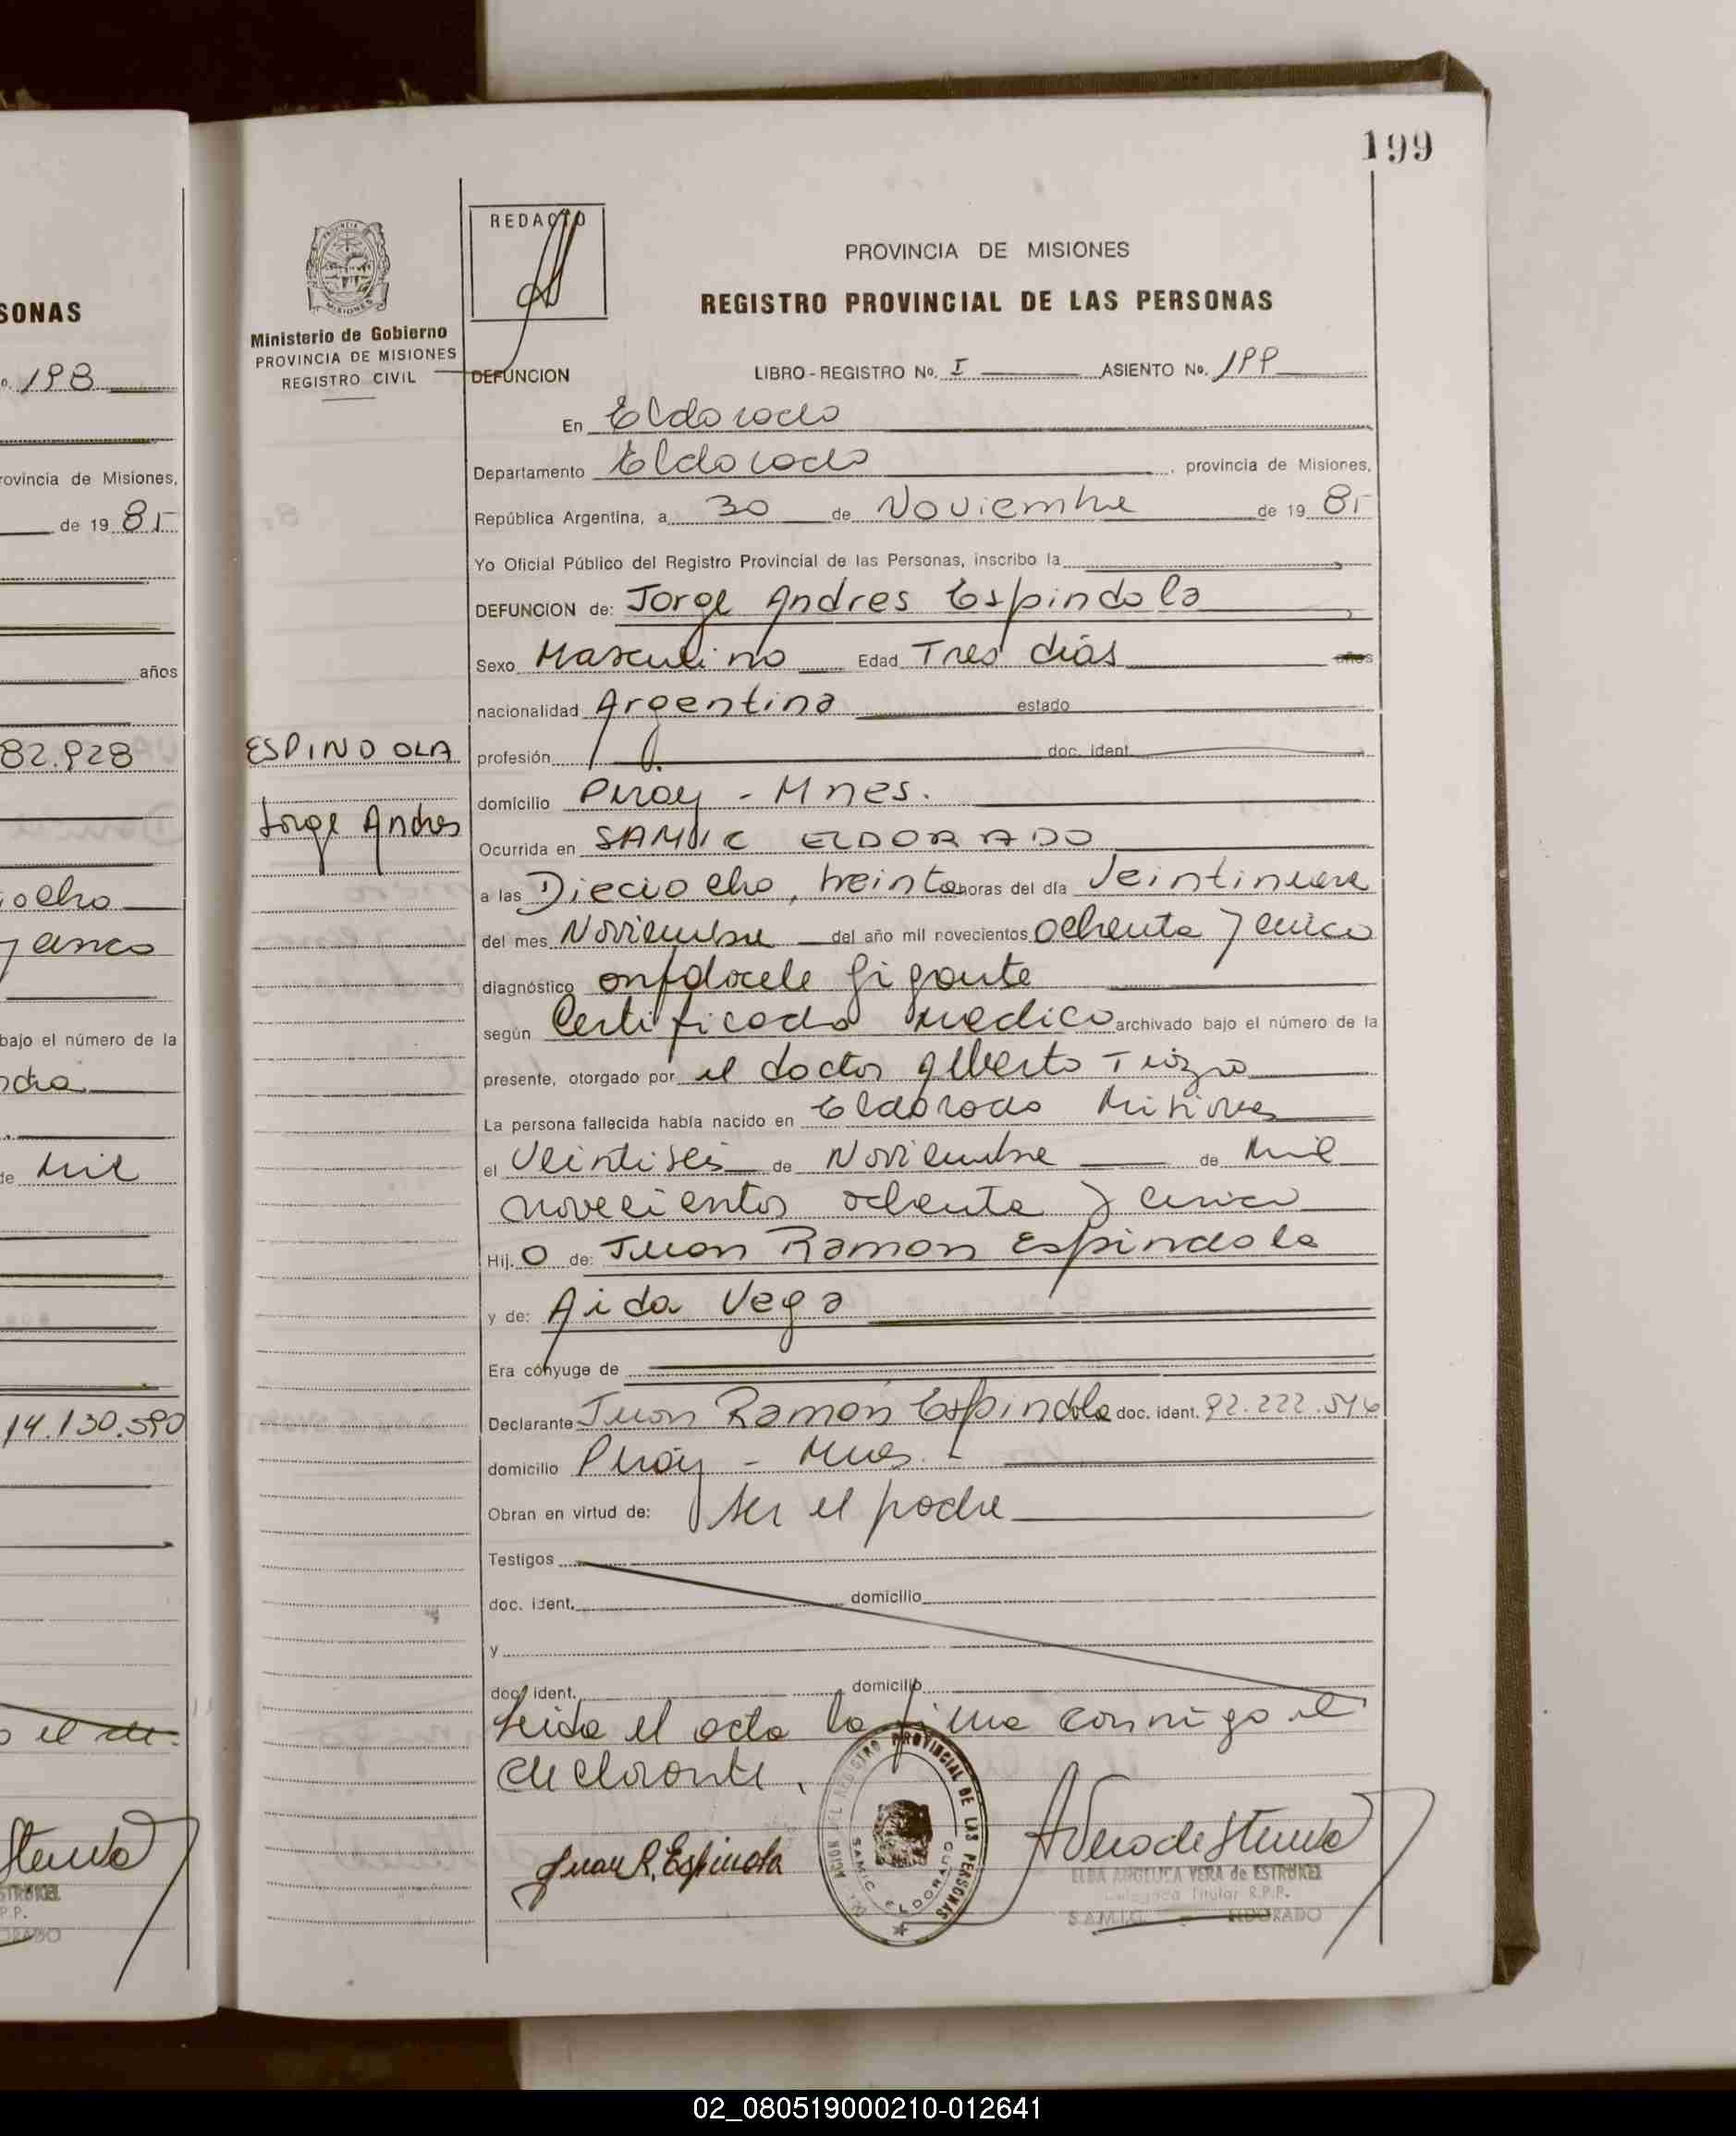 199
SONAS
o. 198
rovincia de Misiones,
de 19 85
años
82.928
iocho
y cinco
bajo el número de la
de Mil
14.130.590
o el de-
PROVINCIA
MISIONES
Ministerio de Gobierno
PROVINCIA DE MISIONES
REGISTRO CIVIL
ESPINDOLA
Jorge Andres
REDACTO
PROVINCIA DE MISIONES
REGISTRO PROVINCIAL DE LAS PERSONAS
DEFUNCION LIBRO-REGISTRO No. I ASIENTO No. 199
En Eldorado
Departamento Eldorado, provincia de Misiones,
República Argentina, a 30 de Noviembre de 19 85
Yo Oficial Público del Registro Provincial de las Personas, inscribo la
DEFUNCION de: Jorge Andres Espindola
Sexo Masculino Edad Tres días años
nacionalidad Argentina estado
profesión doc. ident.
domicilio Piray - Mnes.
Ocurrida en SAMIC ELDORADO
a las Dieciocho, treinta horas del día Veintinueve
del mes Noviembre del año mil novecientos ochenta y cinco
diagnóstico onfalocele gigante
según Certificado medico archivado bajo el número de la
presente, otorgado por el doctor Alberto
La persona fallecida había nacido en Eldorado Misiones
el Veintiseis de Noviembre de Mil
novecientos ochenta y cinco
Hij. o de: Juan Ramon Espindola
y de: Aida Vega
Era cónyuge de
Declarante Juan Ramon Espindola doc. ident. 92.222.546
domicilio Piray - Mnes. -
Obran en virtud de: ser el padre
Testigos
doc. ident. domicilio
y
doc. ident. domicilio
Leida el acta la firma conmigo el
declarante.
Juan R. Espinola
REGISTRO PROVINCIAL DE LAS PERSONAS
SAMIC ELDORADO
AVera de Estrukel
ELBA ANGELICA VERA de ESTRUKEL
Delegada Titular R.P.P.
S.A.M.I.C. - ELDORADO
02_080519000210-012641